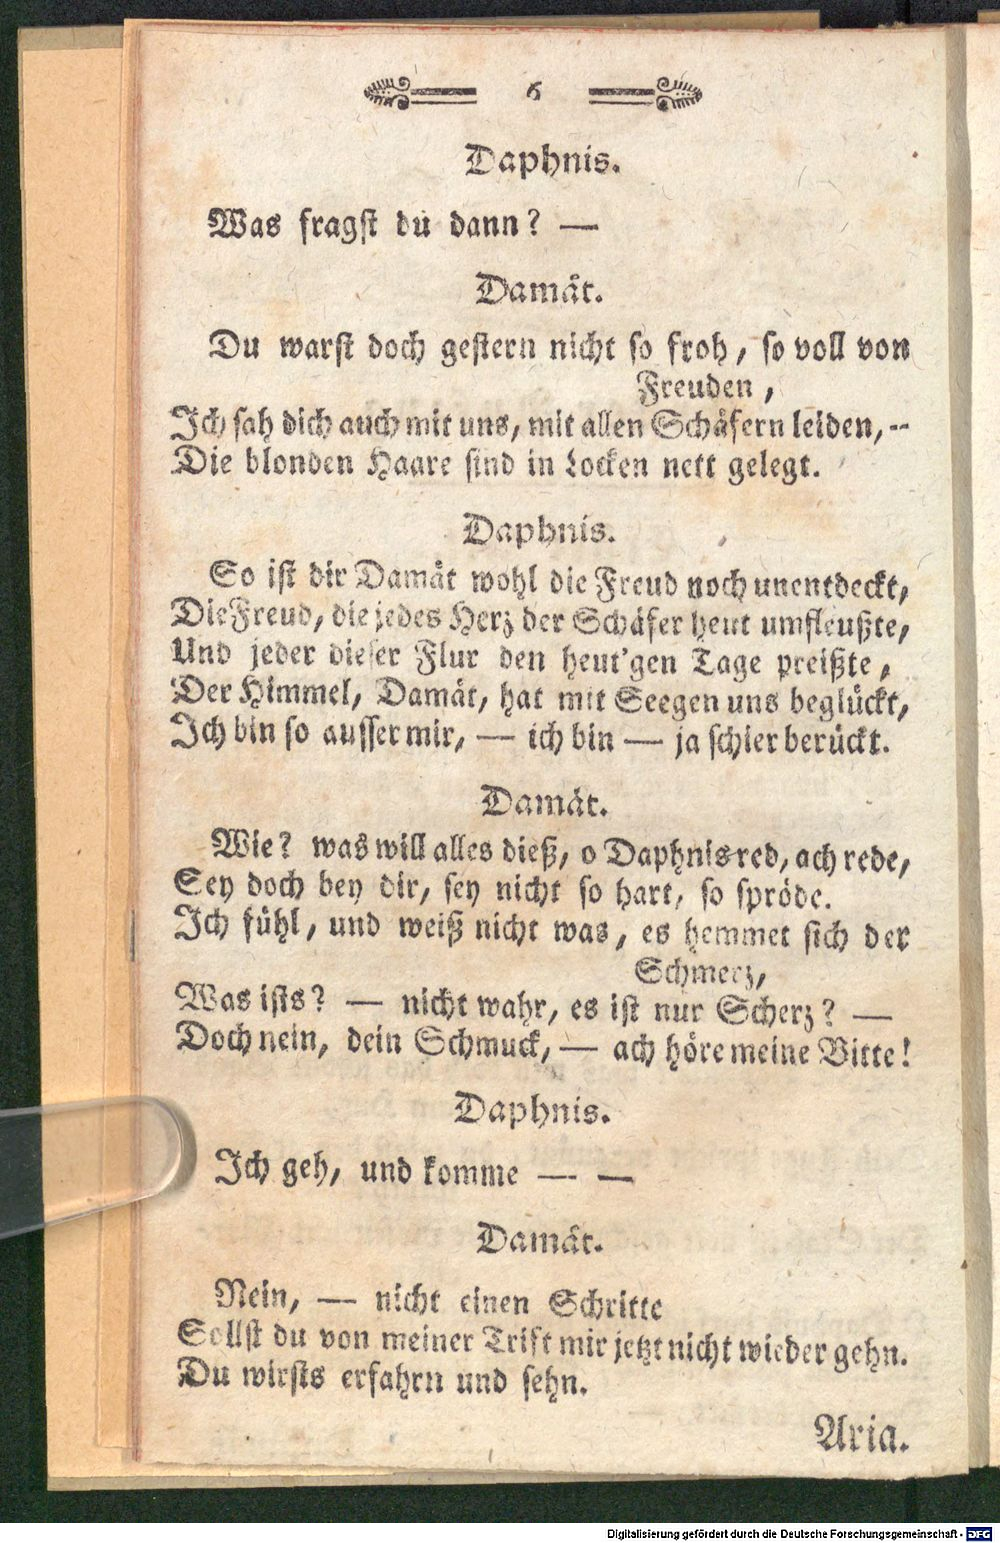 6
Daphnis.
Was fragst du dann? —
Damät.
Du warst doch gestern nicht so froh, so voll von
Freuden,
Ich sah dich auch mit uns, mit allen Schäfern leiden, --
Die blonden Haare sind in Locken nett gelegt.
Daphnis.
So ist dir Damät wohl die Freud noch unentdeckt,
Die Freud, die jedes Herz der Schäfer heut umfleußte,
Und jeder dieser Flur den heut'gen Tage preißte,
Der Himmel, Damät, hat mit Seegen uns beglückt,
Ich bin so ausser mir, — ich bin — ja schier berückt.
Damät.
Wie? was will alles dieß, o Daphnis red, ach rede,
Sey doch bey dir, sey nicht so hart, so spröde.
Ich fühl, und weiß nicht was, es hemmet sich der
Schmerz,
Was ists? — nicht wahr, es ist nur Scherz? —
Doch nein, dein Schmuck, — ach höre meine Bitte!
Daphnis.
Ich geh, und komme — —
Damät.
Nein, — nicht einen Schritte
Sollst du von meiner Trift mir jetzt nicht wieder gehn.
Du wirsts erfahrn und sehn.
Aria.
Digitalisierung gefördert durch die Deutsche Forschungsgemeinschaft - DFG